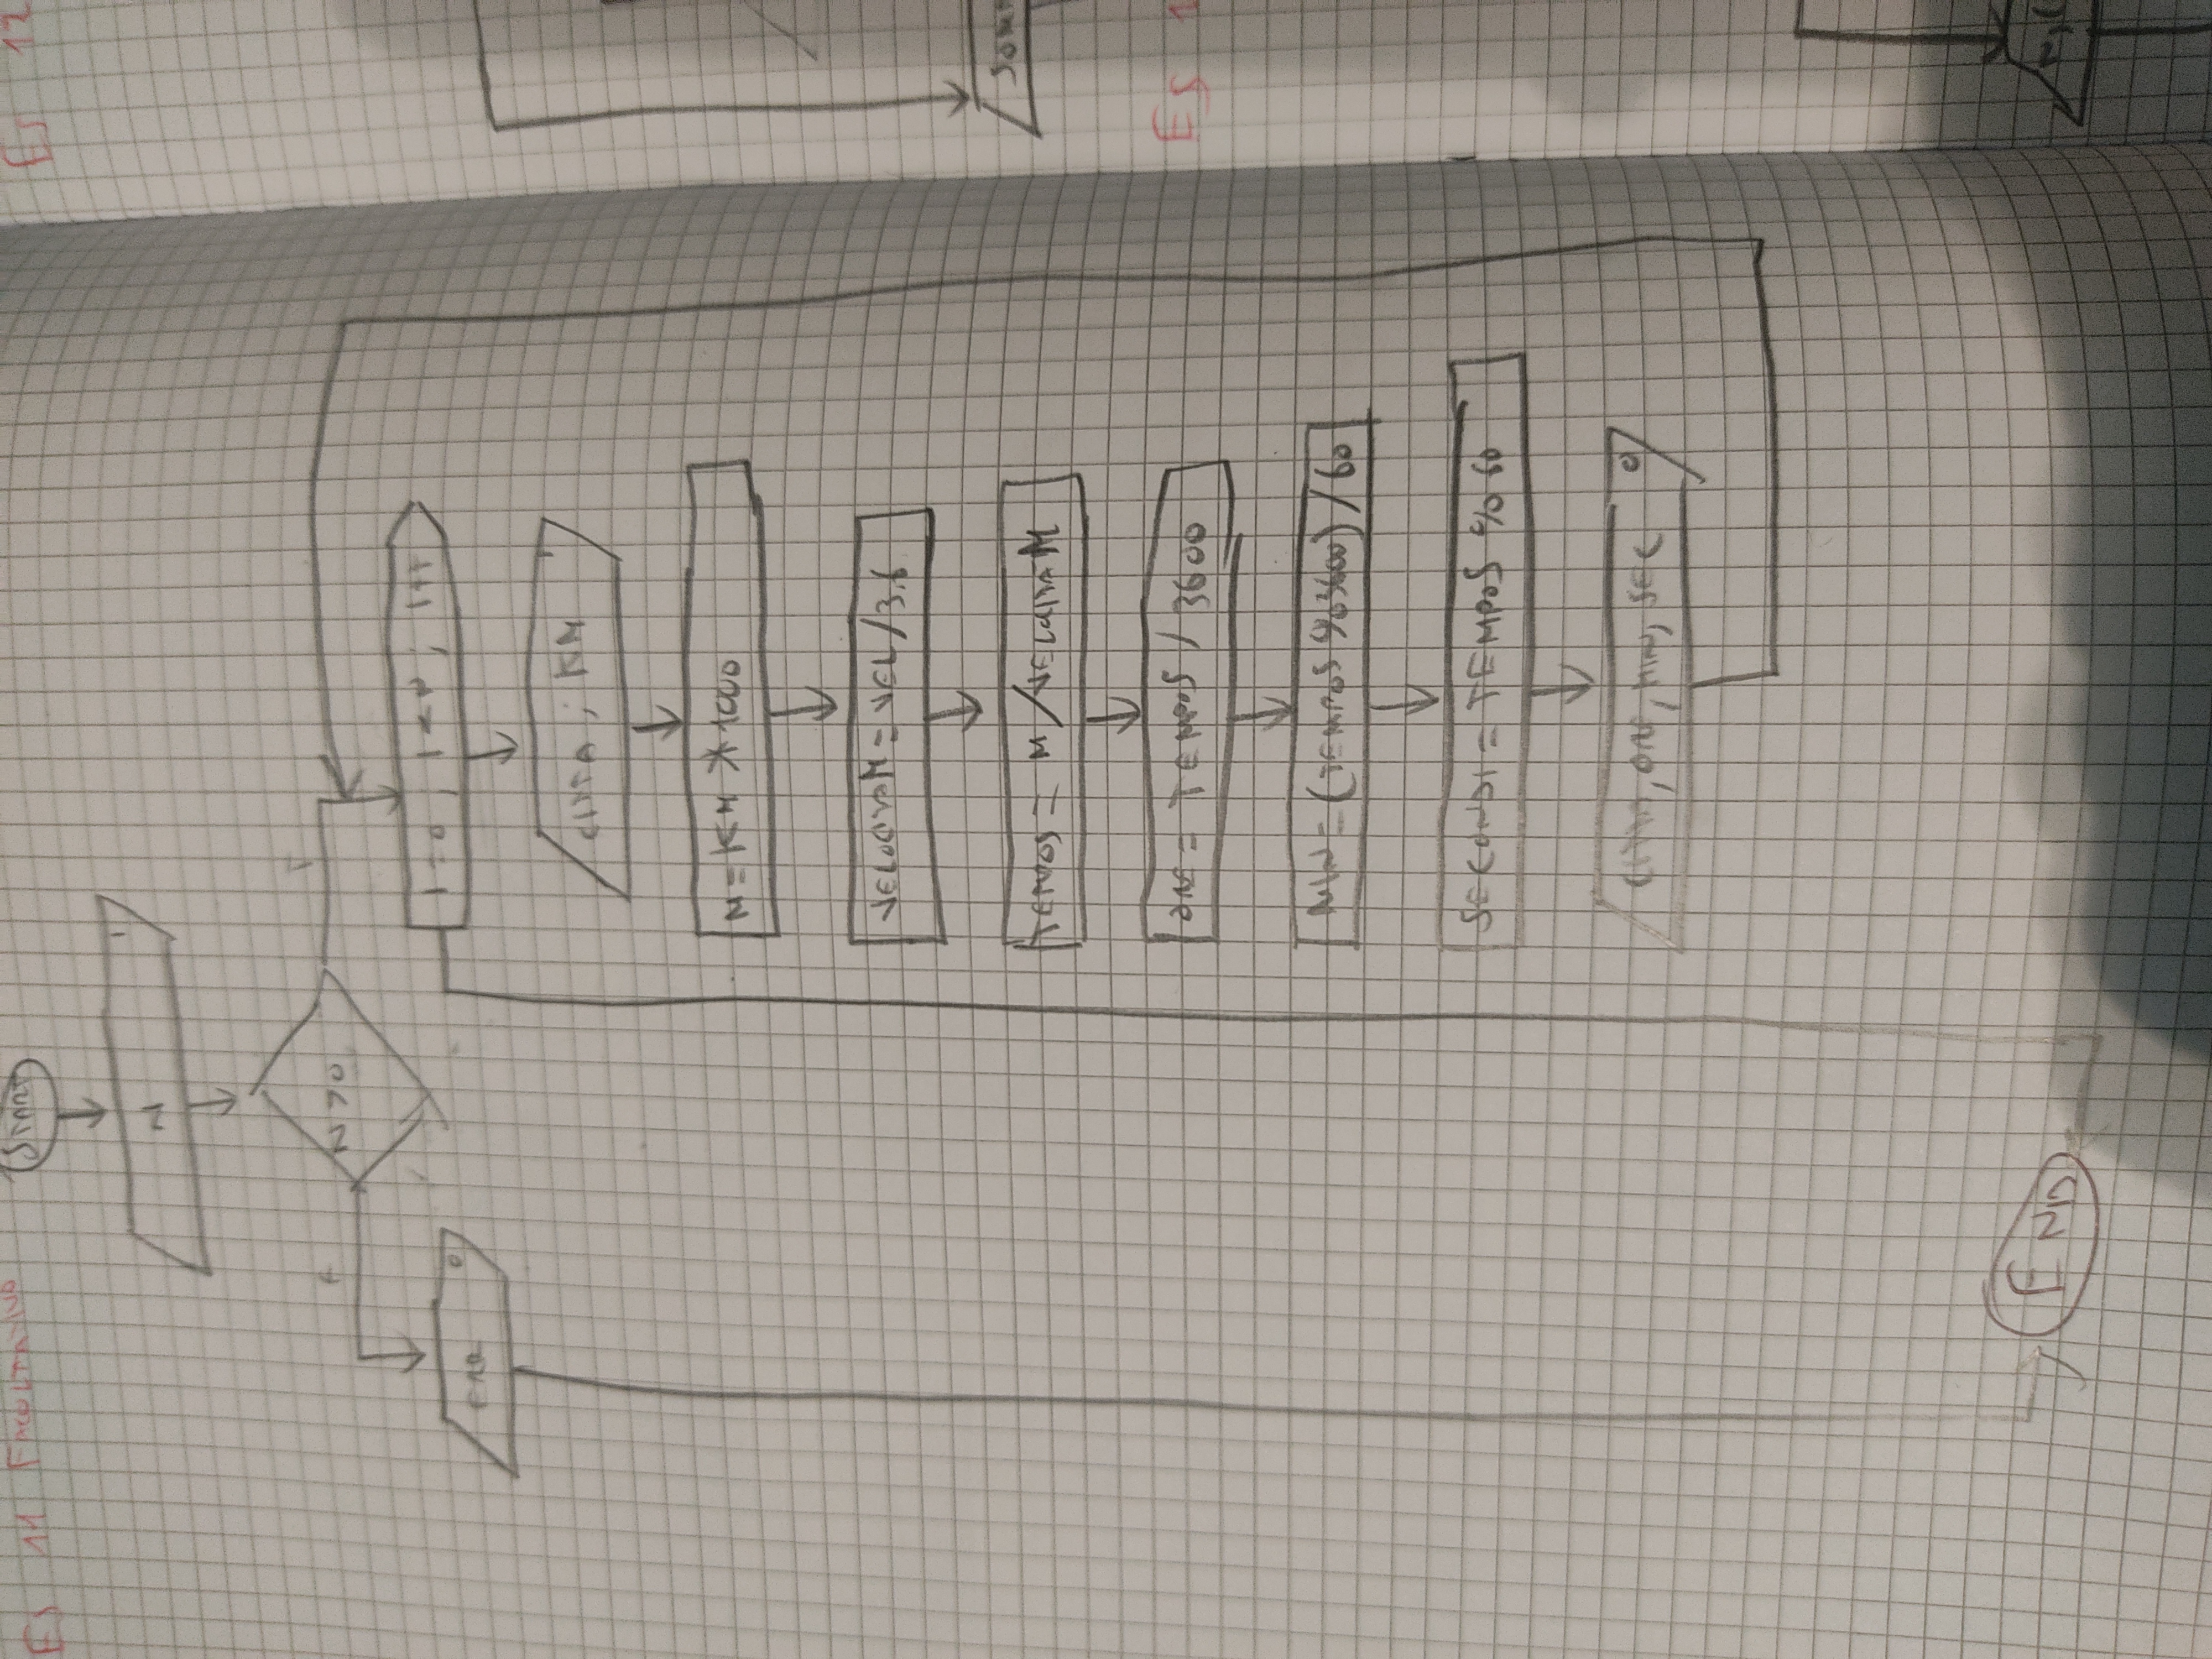 Es 11 FACOLTATIVO
START
I
N
N > 0
F
T
ERR
O
I=0 ; I<N ; I++
CITTA ; KM
I
M = KM * 1000
VELOCITAM = VEL / 3.6
TEMPOS = M / VELOCITAM
ORE = TEMPOS / 3600
MIN = (TEMPOS % 3600) / 60
SECONDI = TEMPOS % 60
CITTA, ORE, MIN, SEC
O
END
Es 12
Es 1